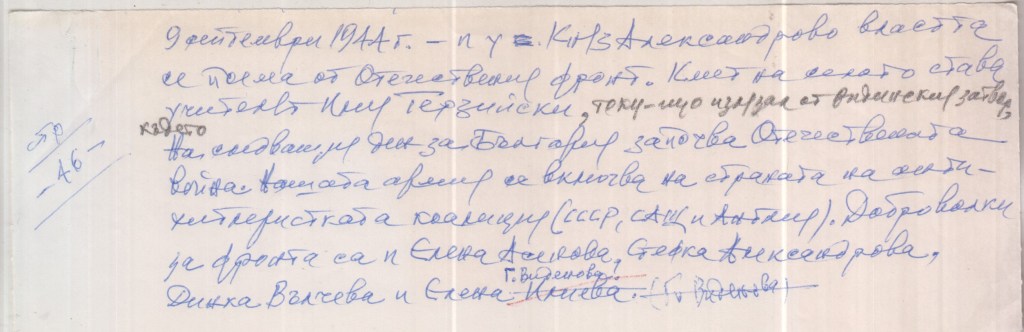 9 септември 1944 г. – и в с. Княз Александрово властта
се поема от Отечествения фронт. Кмет на селото става
учителят Илия Терзийски, току-що излязъл от Видинския затвор,
където
На следващия ден за България започва Отечествената
война. Нашата армия се включва на страната на анти-
хитлеристката коалиция (СССР, САЩ и Англия). Доброволки
за фронта са и Елена Асенова, Стефка Александрова,
Г. Виденова.
Динка Вълчева и Елена Илиева. (Г. Виденова)
- 46 -